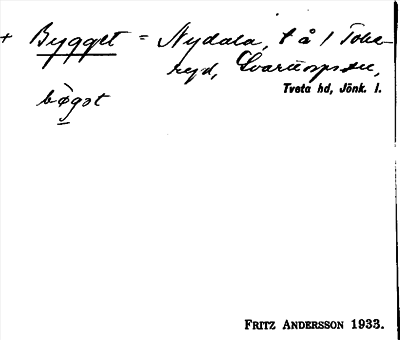 + Bygget = Nydala, t å 1 Toke-
ryd, Svarttorps sn,
Tveta hd, Jönk. l.
bǿgǝt
FRITZ ANDERSSON 1933.